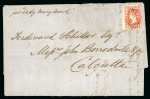 per Lady Mary Wood
Ferdinand Schiller Esq
Messrs John Borradaile & Co
Calcutta